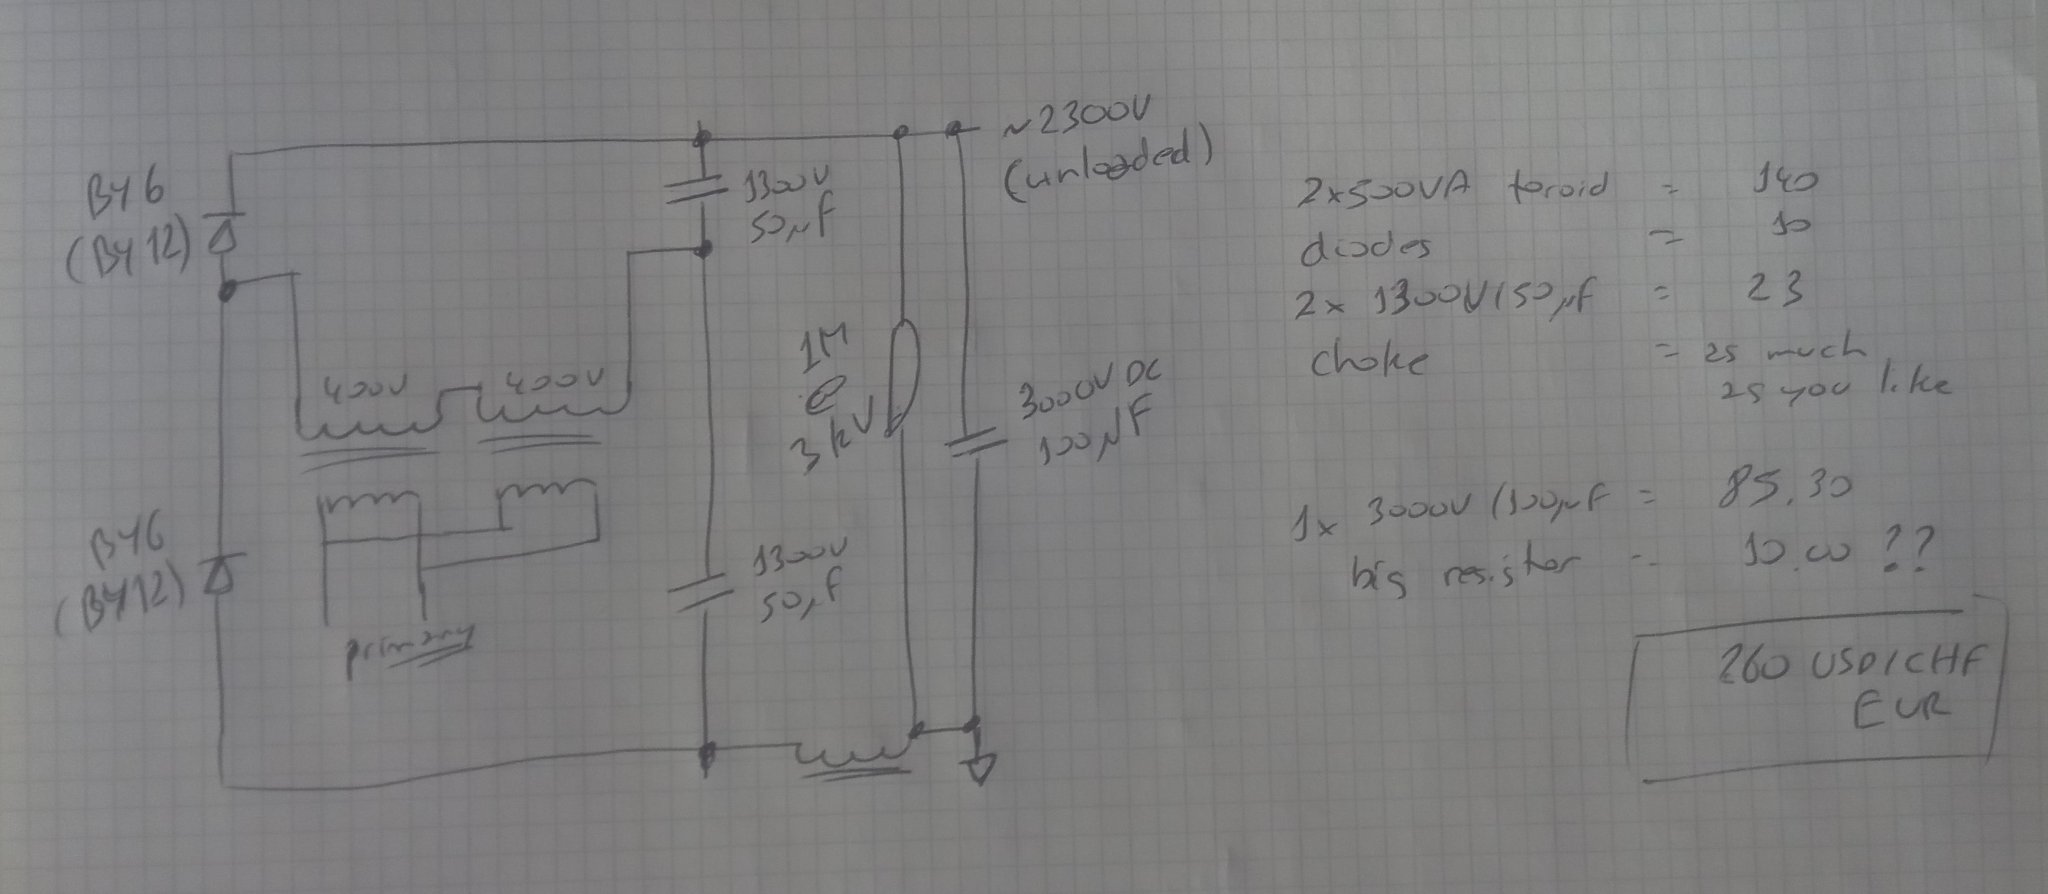 BY6
(BY12)
BY6
(BY12)
400V
400V
primary
1300V
50µF
1300V
50µF
1M
@
3kV
3000V DC
100µF
~2300V
(unloaded)
2x500VA toroid = 140
diodes = 10
2x 1300V/50µF = 23
choke = as much
as you like
1x 3000V/100µF = 85.30
big resistor = 10.00 ??
260 USD/CHF
EUR